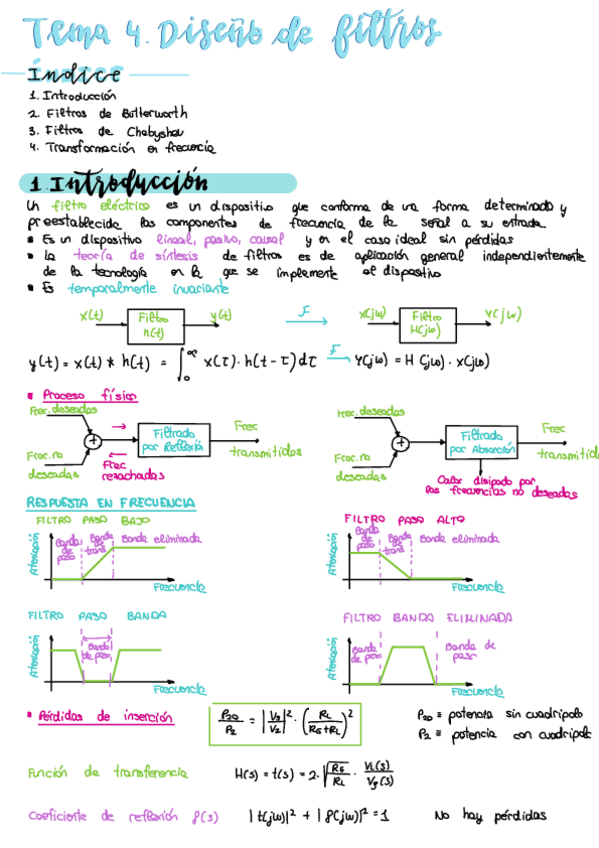 Tema 4. Diseño de filtros
Indice
1. Introducción
2. Filtros de Butterworth
3. Filtros de Chebyshev
4. Transformación en frecuencia
1. Introducción
Un filtro eléctrico es un dispositivo que conforma de una forma determinada y
preestablecida las componentes de frecuencia de la señal a su entrada.
Es un dispositivo lineal, pasivo, causal y en el caso ideal sin pérdidas
La teoría de síntesis de filtros es de aplicación general independientemente
de la tecnología en la que se implemente el dispositivo
Es temporalmente invariante
x(t) Filtro h(t) y(t) F X(jω) Filtro H(jω) Y(jω)
y(t) = x(t) * h(t) = ∫₀^∞ x(τ)·h(t-τ)dτ F Y(jω) = H(jω)·X(jω)
Proceso físico
Frec. deseadas
Frec. no deseadas
+
Filtrado por Reflexión
Frec transmitidas
Frec rechazadas
Frec. deseadas
Frec. no deseadas
+
Filtrado por Absorción
Frec transmitid
Calor disipado por
las frecuencias no deseadas
RESPUESTA EN FRECUENCIA
FILTRO PASO BAJO
Atenuación
Banda de paso
Banda de trans
Banda eliminada
Frecuencia
FILTRO PASO ALTO
Atenuación
Banda de paso
Banda de trans
Banda eliminada
Frecuencia
FILTRO PASO BANDA
Atenuación
Banda de paso
Frecuencia
FILTRO BANDA ELIMINADA
Atenuación
Banda de paso
Banda de paso
Frecuencia
Pérdidas de inserción
P20/P2 = |Vg/V2|² · (RL/(RG+RL))²
P20 ≡ potencia sin cuadripolo
P2 ≡ potencia con cuadripolo
Función de transferencia H(s) = t(s) = 2·√(RG/RL) · VL(s)/Vg(s)
Coeficiente de reflexión ρ(s) |t(jω)|² + |ρ(jω)|² = 1 No hay pérdidas